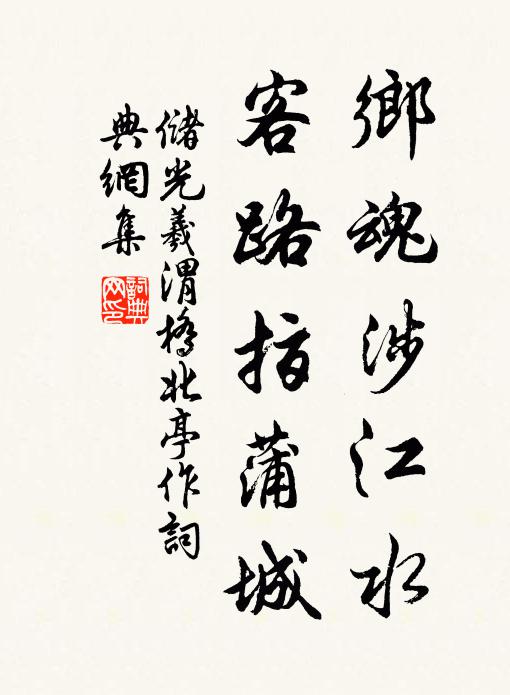 鄉魂涉江水
客路指蒲城
儲光羲渭橋北亭作詞
典網集
詞典
网印